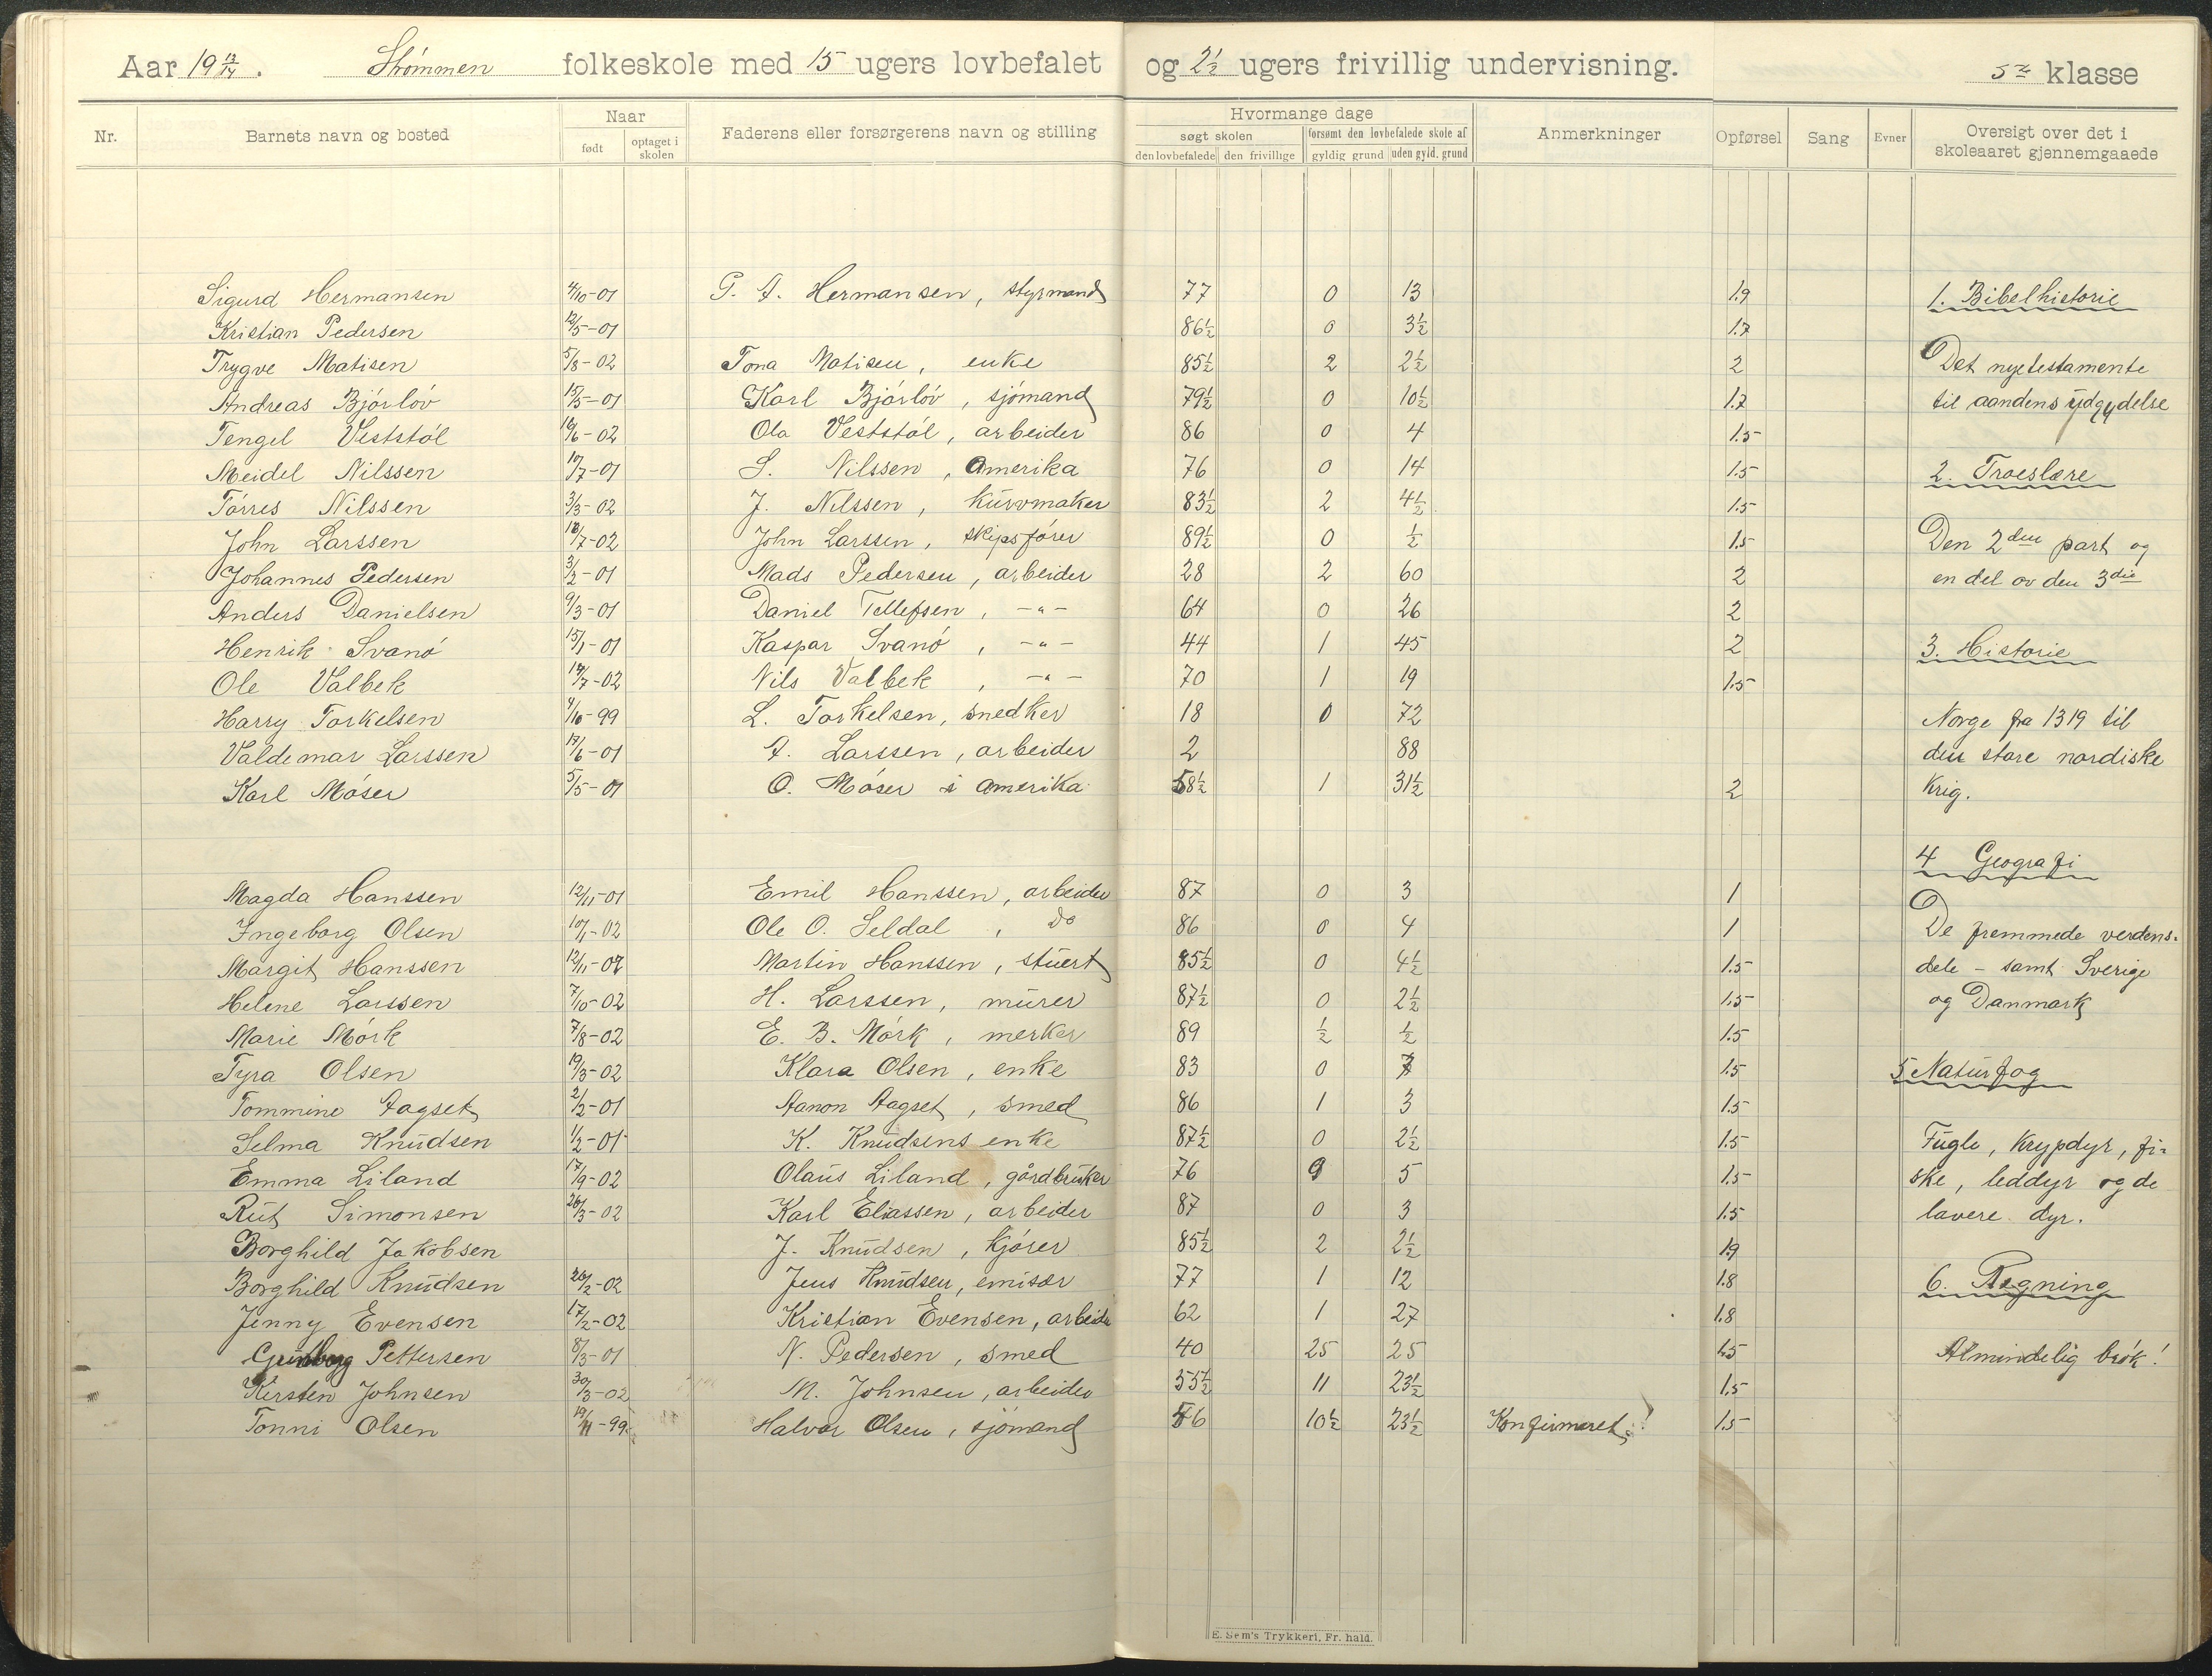 Aar 19 13/14. Strømmen folkeskole med 15 ugers lovbefalet og 2½ ugers frivillig undervisning. 5te klasse
Nr. Barnets navn og bosted Naar født optaget i skolen Faderens eller forsørgerens navn og stilling Hvormange dage søgt skolen den lovbefalede den frivillige forsømt den lovbefalede skole af gyldig grund uden gyld. grund Anmerkninger Opførsel Sang Evner Oversigt over det i skoleaaret gjennemgaaede
Sigurd Hermansen 4/10-01 G. A. Hermansen, styrmand 77 0 13 1.9 1. Bibelhistorie
Kristian Pedersen 12/5-01 86½ 0 3½ 1.7
Trygve Matisen 5/8-02 Tona Matisen, enke 85½ 2 2½ 2 Det nye testamente
Andreas Bjórlóv 15/5-01 Karl Bjórlóv, sjómand 79½ 0 10½ 1.7 til aandens udgydelse
Tengel Veststól 16/6-02 Ola Veststól, arbeider 86 0 4 1.5
Meidel Nilssen 17/7-01 S. Nilssen, Amerika 76 0 14 1.5 2. Troeslære
Tórres Nilssen 3/3-02 J. Nilssen, kurvmaker 83½ 2 4½ 1.5
John Larssen 18/7-02 John Larssen, skipsfórer 89½ 0 ½ 1.5 Den 2den part og
Johannes Pedersen 3/2-01 Mads Pedersen, arbeider 28 2 60 2 en del av den 3die
Anders Danielsen 9/3-01 Daniel Tellefsen, -"- 64 0 26 2
Henrik Svanó 15/1-01 Kaspar Svanó, -"- 44 1 45 2 3. Historie
Ole Valbek 14/7-02 Nils Valbek, -"- 70 1 19 1.5
Harry Torkelsen 4/10-99 L. Torkelsen, snedker 18 0 72 Norge fra 1319 til
Valdemar Larssen 17/6-01 A. Larssen, arbeider 2 88 den store nordiske
Karl Móser 5/5-01 O. Móser i Amerika 58½ 1 31½ 2 krig.
4 Geografi
Magda Hanssen 12/11-01 Emil Hanssen, arbeider 87 0 3 1
Ingeborg Olsen 10/1-02 Ole O. Seldal, Do 86 0 4 1 De fremmede verdens-
Margit Hanssen 12/11-02 Martin Hanssen, stuert 85½ 0 4½ 1.5 dele - samt Sverige
Helene Larssen 7/10-02 H. Larssen, murer 87½ 0 2½ 1.5 og Danmark
Marie Mórk 7/8-02 E. B. Mórk, merker 89 ½ ½ 1.5
Tyra Olsen 19/3-02 Klara Olsen, enke 83 0 7 1.5 5 Naturfag
Tommine Aagset 2/2-01 Aanon Aagset, smed 86 1 3 1.5
Selma Knudsen 1/2-01 K. Knudsens enke 87½ 0 2½ 1.5 Fugle, krypdyr, fi-
Emma Liland 17/9-02 Olaus Liland, gårdbruker 76 9 5 1.5 ske, leddyr og de
Rut Simonsen 26/3-02 Karl Eliassen, arbeider 87 0 3 1.5 lavere dyr.
Borghild Jakobsen J. Knudsen, kjórer 85½ 2 2½ 1.9
Borghild Knudsen 26/2-02 Jens Knudsen, emisær 77 1 12 1.8 6. Regning
Jenny Evensen 17/2-02 Kristian Evensen, arbeider 62 1 27 1.8
Gunborg Pettersen 8/3-01 N. Pedersen, smed 40 25 25 1.5 Almindelig brók!
Kirsten Johnsen 30/3-02 M. Johnsen, arbeider 55½ 11 23½ 1.5
Tonni Olsen 19/11-99 Halvor Olsen, sjómand 56 10½ 23½ Konfirmeret! 1.5
E. Sem's Trykkeri, Fr. hald.